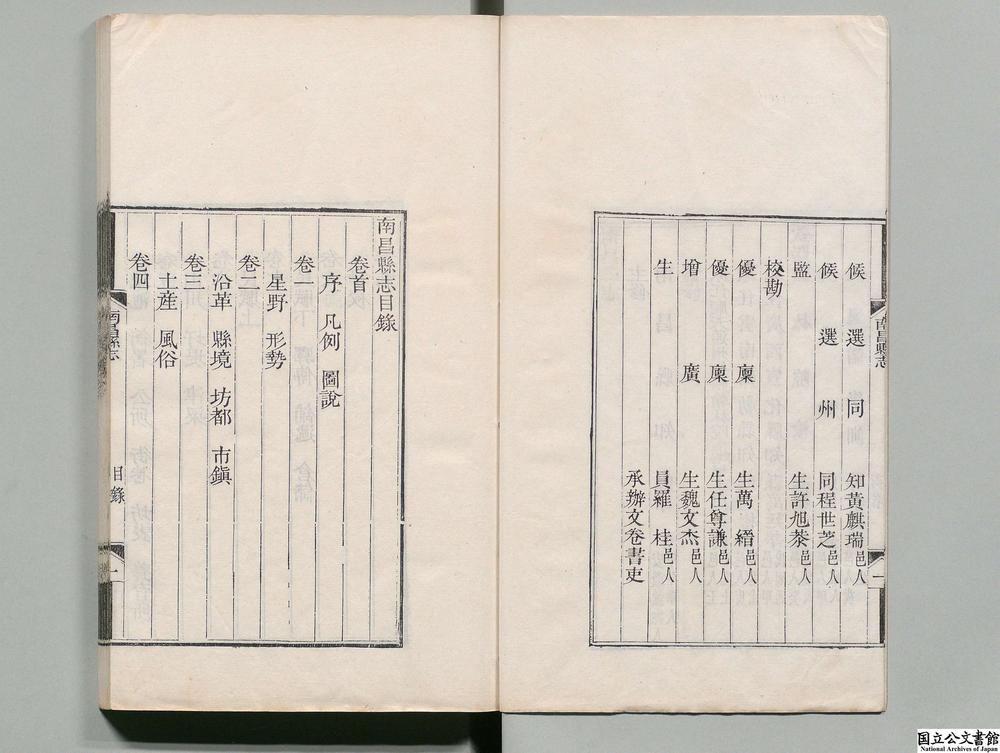 候選同知黃麒瑞邑人
候選州同程世芝邑人
監生許旭棻邑人
校勘
優廩生萬縉邑人
優廩生任尊謙邑人
增廣生魏文杰邑人
生員羅桂邑人
承辦文卷書吏
南昌縣志
一
南昌縣志目錄
卷首
序 凡例 圖說
卷一
星野 形勢
卷二
沿革 縣境 坊都 市鎭
卷三
土産 風俗
卷四
南昌縣志
目錄
一
国立公文書館
National Archives of Japan